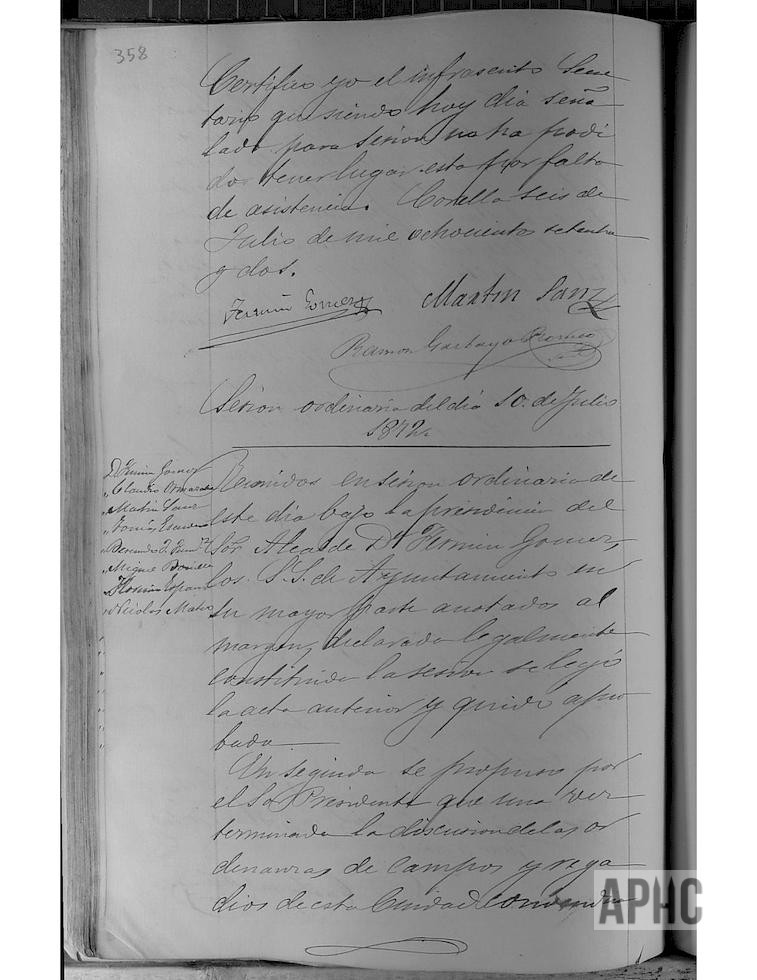 358
Certifico yo el infrascrito Secre
tario que siendo hoy dia seña
lado para sesion no ha podi
do tener lugar esta por falta
de asistencia. Corella seis de
Julio de mil ochocientos setenta
y dos.
Fermin Gomez Martin Sanz
Ramon Garbayo
Sesion ordinaria del dia 10 de Julio
1872
D. Fermin Gomez
" Claudio
" Martin Sanz
" Tomás
"
" Miguel
" Español
" Nicolas Mateo
Reunidos en sesion ordinaria de
este dia bajo la presidencia del
Sor Alcalde Dn Fermin Gomez,
los S.S. de Ayuntamiento en
su mayor parte anotados al
margen, declarada legalmente
constituida la sesion se leyó
la acta anterior y quedó apro
bada
En seguida se propuso por
el Sor Presidente que una vez
terminada la discusion de las or
denanzas de campos y rega
dios de esta Ciudad
APHC